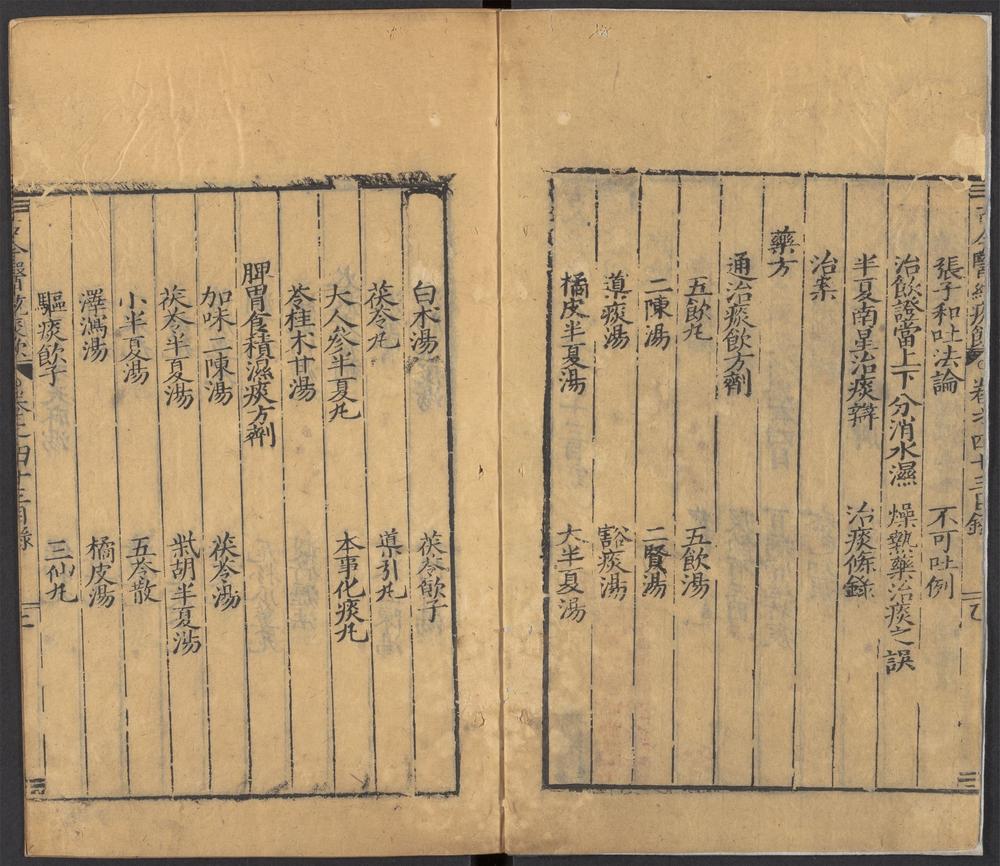 張子和吐法論　不可吐例
治飲證當上下分消水濕　燥熱藥治痰之誤
半夏南星治痰辯　治痰條錄
治案
藥方
通治痰飲方劑
五飲丸　五飲湯
二陳湯　二賢湯
導痰湯　豁痰湯
橘皮半夏湯　大半夏湯
白朮湯　茯苓飲子
茯苓丸　導引丸
大人參半夏丸　本事化痰丸
苓桂朮甘湯
脾胃食積濕痰方劑
加味二陳湯　茯苓湯
茯苓半夏湯　柴胡半夏湯
小半夏湯　五苓散
澤瀉湯　橘皮湯
驅痰飲子　三仙丸